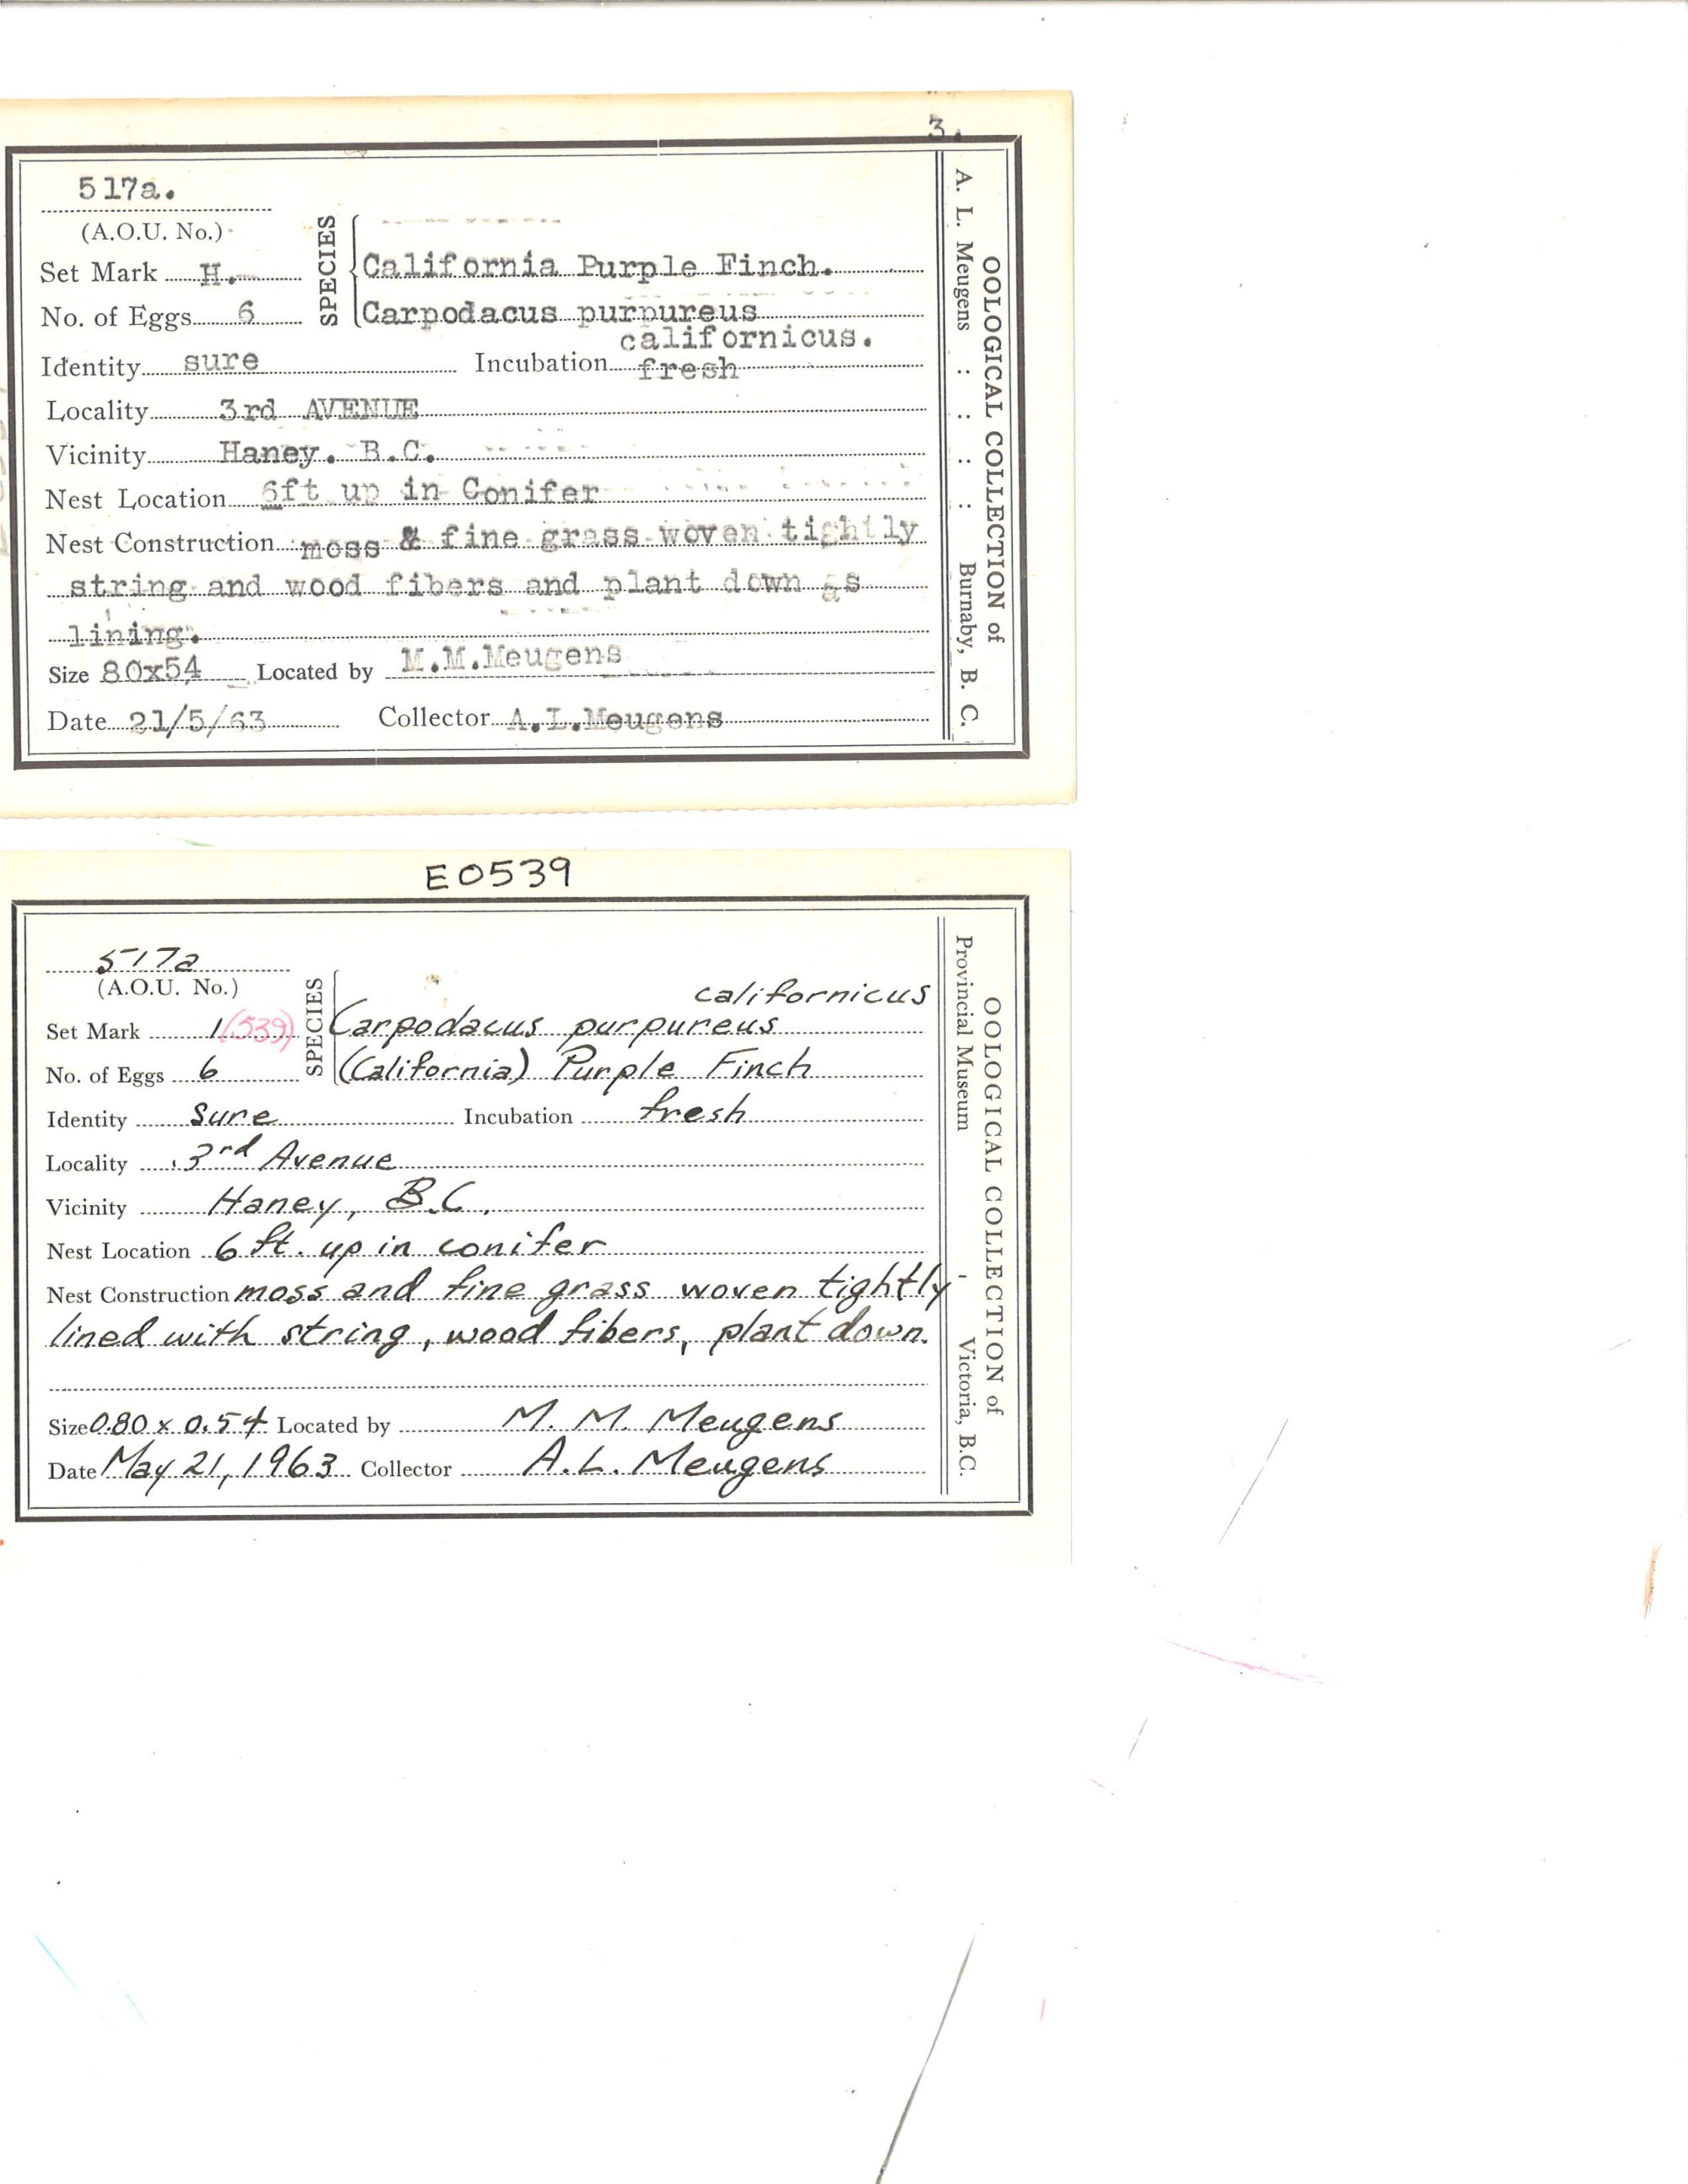 3.
517a.
(A.O.U. No.)
SPECIES
Set Mark H. California Purple Finch.
No. of Eggs 6 Carpodacus purpureus
californicus.
Identity sure Incubation fresh
Locality 3rd AVENUE
Vicinity Haney. B.C.
Nest Location 6ft up in Conifer
Nest Construction moss & fine grass woven tightly
string and wood fibers and plant down as
lining.
Size 80x54 Located by M.M.Meugens
Date 21/5/63 Collector A.L.Meugens
OOLOGICAL COLLECTION of
A. L. Meugens : : : : Burnaby, B. C.
E0539
517a
(A.O.U. No.)
SPECIES
californicus
Set Mark 1(539) Carpodacus purpureus
No. of Eggs 6 (California) Purple Finch
Identity Sure Incubation fresh
Locality 3rd Avenue
Vicinity Haney, B.C.
Nest Location 6 ft. up in conifer
Nest Construction moss and fine grass woven tightly
lined with string, wood fibers, plant down.
Size 0.80 x 0.54 Located by M. M. Meugens
Date May 21, 1963 Collector A.L. Meugens
OOLOGICAL COLLECTION of
Provincial Museum - Victoria, B.C.